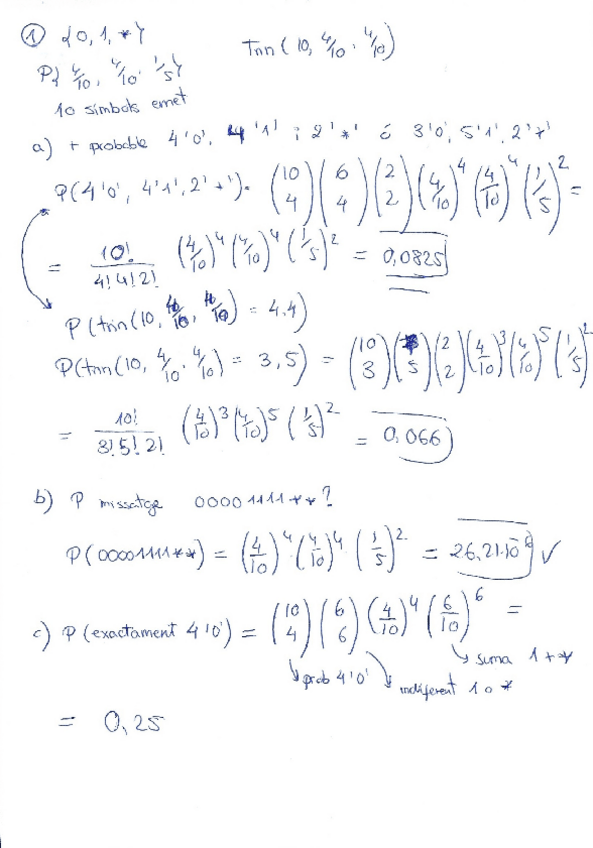 ① {0, 1, *} Tnn(10, 4/10, 4/10)
P{4/10, 4/10, 1/5}
10 símbols emet
a) + probable 4'0', 4'1' i 2'*' ó 3'0', 5'1', 2'*'
P(4'0', 4'1', 2'*') = (10 4)(6 4)(2 2)(4/10)^4 (4/10)^4 (1/5)^2 =
= 10!/(4! 4! 2!) (4/10)^4 (4/10)^4 (1/5)^2 = 0,0825
P(tnn(10, 4/10, 4/10) = 4,4)
P(tnn(10, 4/10, 4/10) = 3,5) = (10 3)(7 5)(2 2)(4/10)^3 (4/10)^5 (1/5)^2
= 10!/(3! 5! 2!) (4/10)^3 (4/10)^5 (1/5)^2 = 0,066
b) P missatge 00001111**?
P(00001111**) = (4/10)^4 (4/10)^4 (1/5)^2 = 26,21·10^-6 ✓
c) P(exactament 4'0') = (10 4)(6 6)(4/10)^4 (6/10)^6 =
↘ suma 1 + *
↘ prob 4'0' ↘ indiferent 1 o *
= 0,25